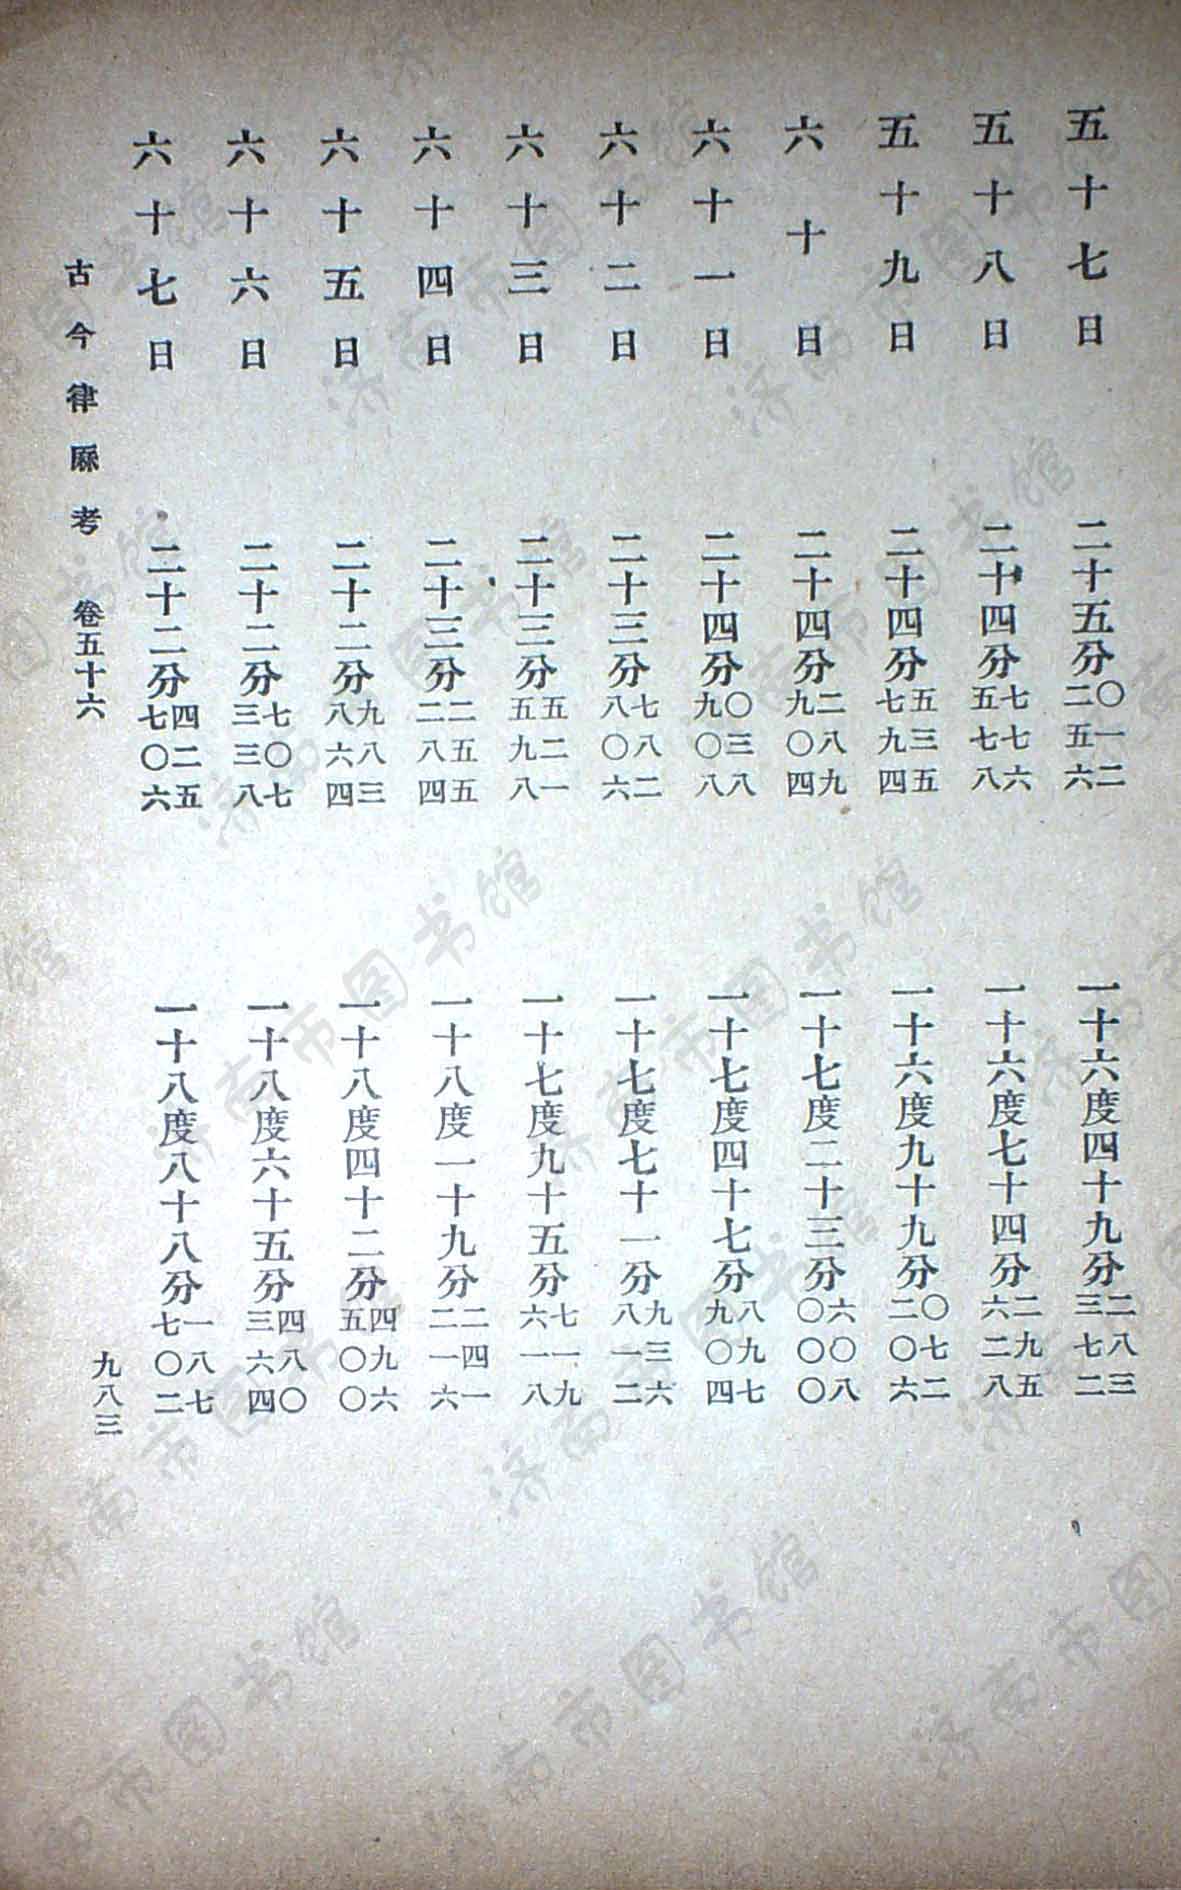 五十七日 二十五分〇一二二五六 一十六度四十九分二八三三七二
五十八日 二十四分七七六五七八 一十六度七十四分二九五六二八
五十九日 二十四分五三五七九四 一十六度九十九分〇七二二〇六
六十日 二十四分二八九九〇四 一十七度二十三分六〇八〇〇〇
六十一日 二十四分〇三八九〇八 一十七度四十七分八九七九〇四
六十二日 二十三分七八二八〇六 一十七度七十一分九三六八一二
六十三日 二十三分五二一五九八 一十七度九十五分七一九六一八
六十四日 二十三分二五五二八四 一十八度一十九分二四一二一六
六十五日 二十二分九八三八六四 一十八度四十二分四九六五〇〇
六十六日 二十二分七〇七三三八 一十八度六十五分四八〇三六四
六十七日 二十二分四二五七〇六 一十八度八十八分一八七七〇二
古今律厤考 卷五十六 九八三
济南市图书馆